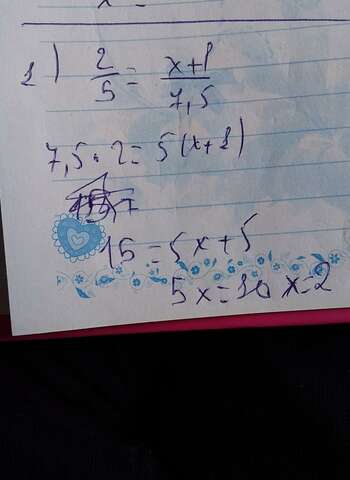 1) 2/5 = x+1/7,5
7,5 · 2 = 5(x+1)
15 = 5x+5
5x=10 x=2